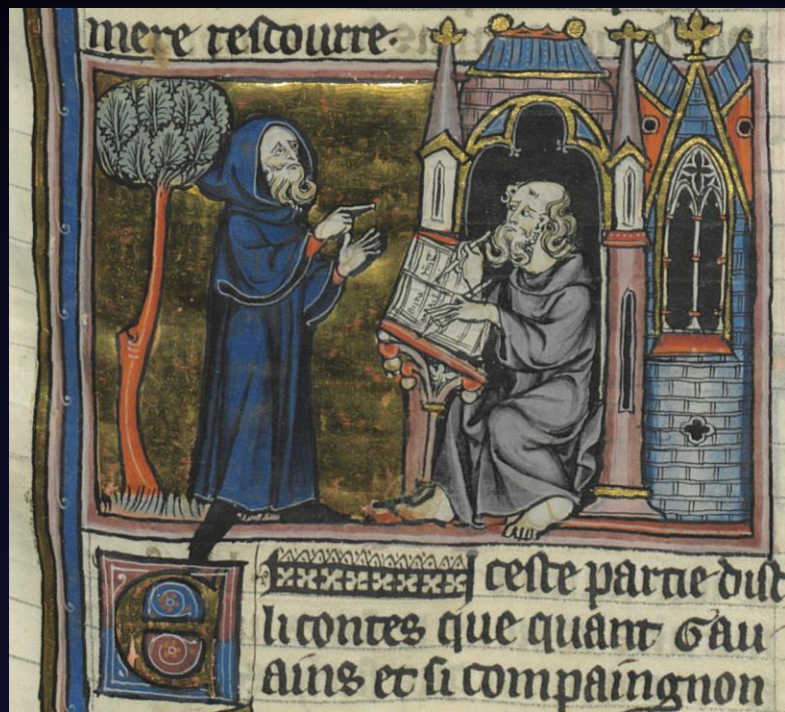 mere rescourre.
E
ceste partie dist
li contes que quant Gau
ains et si compaingnon